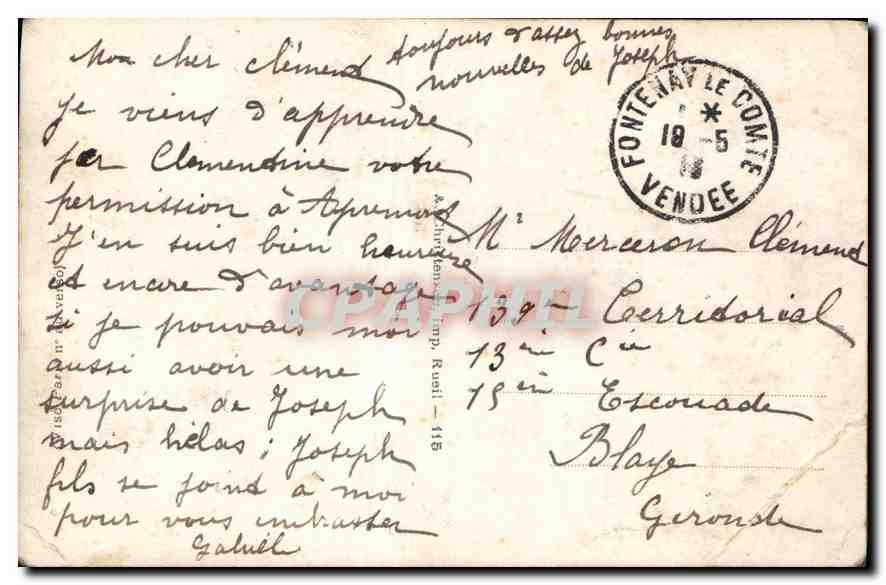 toujours d'assez bonnes
nouvelles de Joseph
Mon cher Clémend
Je viens d'apprendre
par Clementine votre
permission à Apremont
J'en suis bien heureuse
et encore d'avantage
si je pouvais moi
aussi avoir une
surprise de Joseph
mais hélas ; Joseph
fils se joind à moi
pour vous embrasser
FONTENAY LE COMTE
*
18 -5
VENDEE
Mr Merceron Clémend
139me Territorial
13ème Cie
15ème Escouade
Blaye
Gironde
A. Christensen, imp, Rueil — 115
CPAPHIL.COM